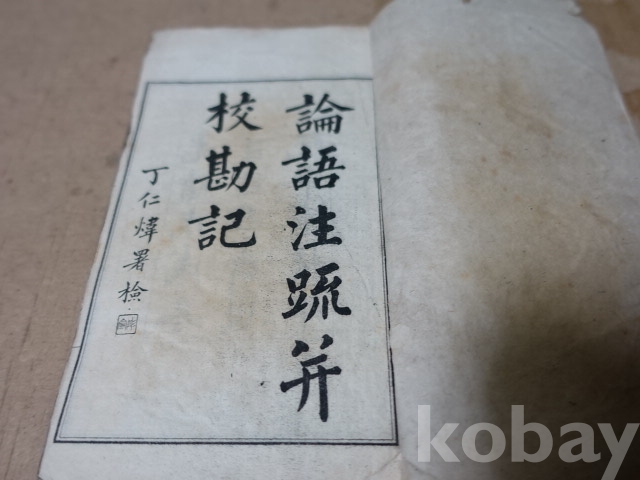 論語注疏并
校勘記
丁仁煒署檢
kobay